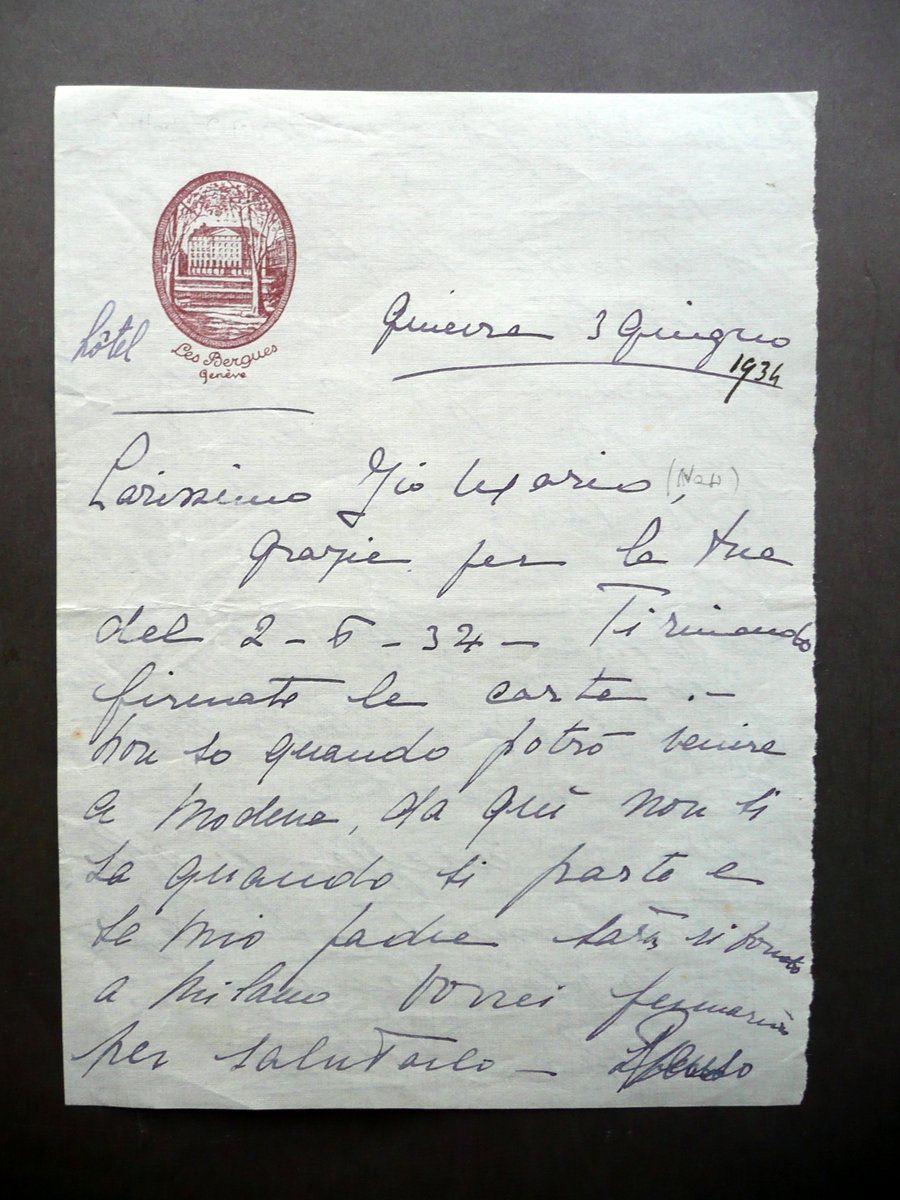 hôtel
Les Bergues
Genève
Ginevra 3 Giugno
1934
Carissimo Gio Mario,
grazie per la tua
del 2-6-34 - Ti rimando
firmate le carte .-
Non so quando potrò venire
a Modena, da quì non si
sa quando si parte e
se mio padre sarà ritornato
a Milano vorrei fermarmi
per salutarlo -